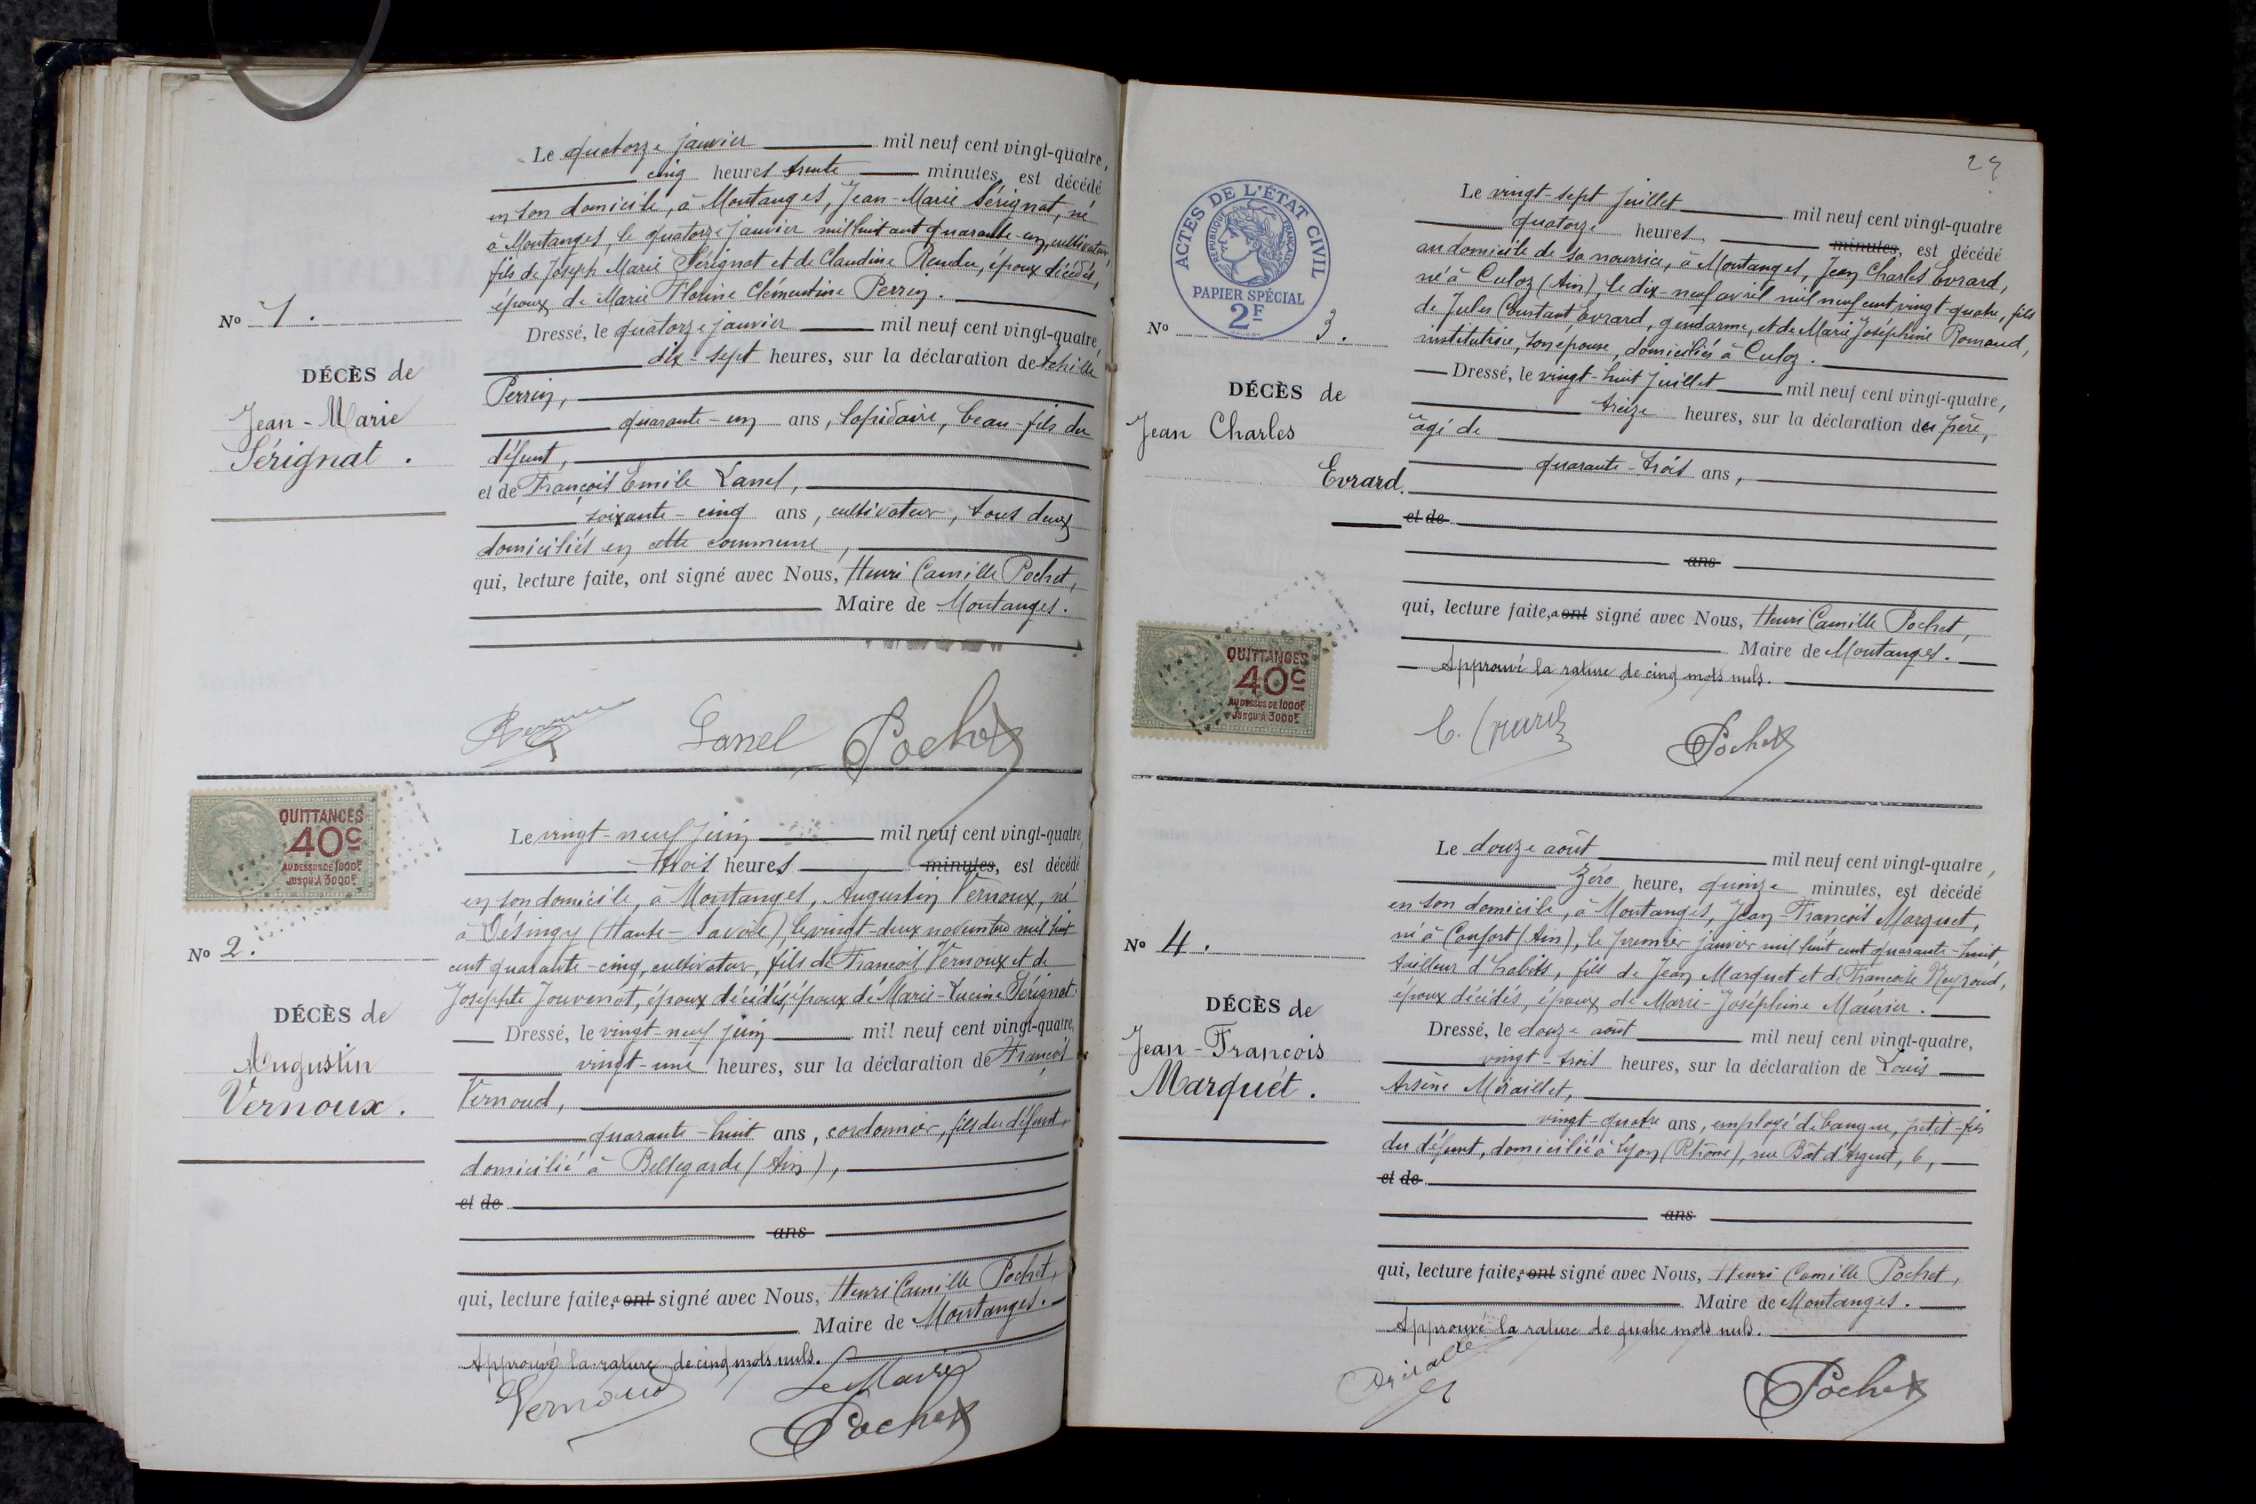 Le quatorze janvier mil neuf cent vingt-quatre,
cinq heures trente minutes, est décédé
en son domicile, à Montanges, Jean-Marie Sérignat, né
à Montanges, le quatorze janvier mil huit cent quarante-un, cultivateur,
fils de Joseph Marie Sérignat et de Claudine Rendu, époux décédés,
époux de Marie Florine Clémentine Perrin.
No 1.
Dressé, le quatorze janvier mil neuf cent vingt-quatre,
dix-sept heures, sur la déclaration de Achille
DÉCÈS de
Perrin,
Jean-Marie
quarante-un ans, lapidaire, beau-fils du
Sérignat.
défunt,
et de François Emile Lanel,
soixante-cinq ans, cultivateur, tous deux
domiciliés en cette commune,
qui, lecture faite, ont signé avec Nous, Henri Camille Pochet,
Maire de Montanges.
Lanel Pochet
QUITTANCES
40c
AU DESSUS DE 1000F
JUSQU'À 3000F
Le vingt-neuf juin mil neuf cent vingt-quatre,
trois heures minutes, est décédé
en son domicile, à Montanges, Augustin Vernoux, né
à Désingy (Haute-Savoie), le vingt-deux novembre mil huit
No 2.
cent quarante-cinq, cultivateur, fils de François Vernoux et de
Josephte Jouvenot, époux décédés, époux de Marie-Lucine Sérignat.
DÉCÈS de
Dressé, le vingt-neuf juin mil neuf cent vingt-quatre,
Augustin
vingt-une heures, sur la déclaration de François
Vernoux.
Vernoud,
quarante-huit ans, cordonnier, fils du défunt,
domicilié à Bellegarde (Ain),
et de
ans
qui, lecture faite, a ont signé avec Nous, Henri Camille Pochet,
Maire de Montanges.
Approuvé la rature de cinq mots nuls.
Vernoud Le Maire
Pochet
29
ACTES DE L'ÉTAT CIVIL
RÉPUBLIQUE FRANÇAISE
PAPIER SPÉCIAL
2F
Le vingt-sept juillet mil neuf cent vingt-quatre
quatorze heures, minutes, est décédé
au domicile de sa nourrice, à Montanges, Jean Charles Evrard,
né à Culoz (Ain), le dix-neuf avril mil neuf cent vingt-quatre, fils
de Jules Constant Evrard, gendarme, et de Marie Joséphine Romand,
No 3.
institutrice, son épouse, domiciliés à Culoz.
Dressé, le vingt-huit juillet mil neuf cent vingt-quatre,
DÉCÈS de
treize heures, sur la déclaration du père,
Jean Charles
âgé de
Evrard.
quarante-trois ans,
et de
ans
qui, lecture faite, a ont signé avec Nous, Henri Camille Pochet,
Maire de Montanges.
Approuvé la rature de cinq mots nuls.
QUITTANCES
40c
AU DESSUS DE 1000F
JUSQU'À 3000F
Pochet
Le douze août mil neuf cent vingt-quatre,
zéro heure, quinze minutes, est décédé
en son domicile, à Montanges, Jean-François Marquet,
No 4.
né à Confort (Ain), le premier janvier mil huit cent quarante-huit,
tailleur d'habits, fils de Jean Marquet et de Françoise Neyroud,
époux décédés, époux de Marie-Joséphine Maurier.
DÉCÈS de
Dressé, le douze août mil neuf cent vingt-quatre,
Jean-François
vingt-trois heures, sur la déclaration de Louis
Marquet.
Arsène Miraillet,
vingt-quatre ans, employé de banque, petit-fils
du défunt, domicilié à Lyon (Rhône), rue Bât d'Argent, 6,
et de
ans
qui, lecture faite, a ont signé avec Nous, Henri Camille Pochet,
Maire de Montanges.
Approuvé la rature de quatre mots nuls.
Pochet